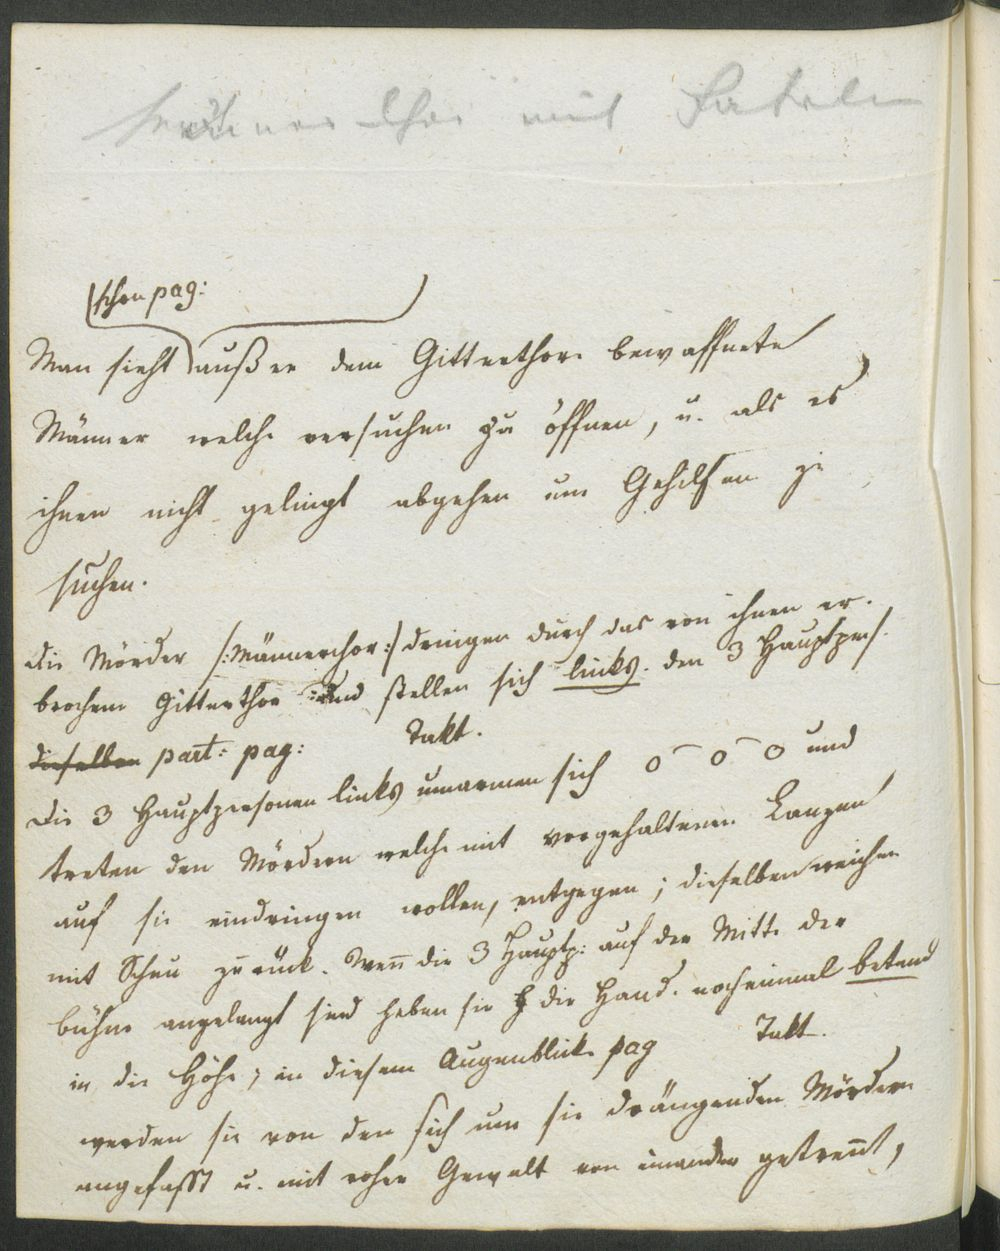 Männer Chor mit Fakeln
schon pag:
Man sieht außer dem Gitterthore bewaffnete
Männer welche versuchen zu öffnen, u. als es
ihnen nicht gelingt abgehen um Gehilfen zu
suchen.
Die Mörder /:Männerchor:/ dringen durch das von ihnen er-
brochene Gitterthor und stellen sich links. den 3 Hauptpers.
dieselben part: pag: Takt.
Die 3 Hauptpersonen links umarmen sich o o o und
treten den Mördern welche mit vorgehaltenen Lanzen
auf sie eindringen wollen, entgegen; dieselben weichen
mit Scheu zurück. Wenn die 3 Hauptp: auf der Mitte der
bühne angelangt sind heben sie die Hände nocheinmal betend
in die Höhe; in diesem Augenblick pag Takt.
werden sie von den sich um sie drängenden Mördern
angefasst u. mit roher Gewalt von einander getrennt,